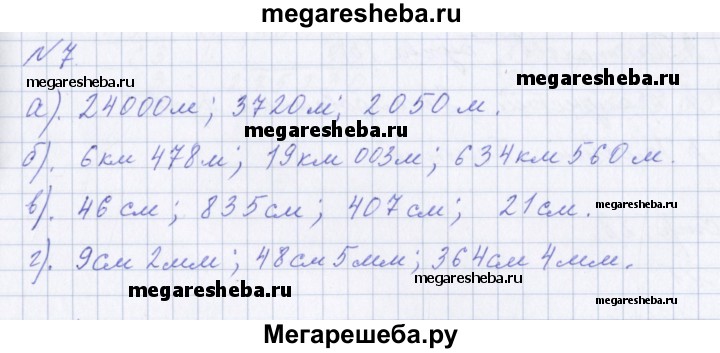 megaresheba.ru
№7
megaresheba.ru megaresheba.ru
а). 24000м; 3720м; 2050м.
megaresheba.ru
б). 6км 478м; 19км 003м; 634км 560м.
в). 46см; 835см; 407см; 21см. megaresheba.ru
г). 9см 2мм; 48см 5мм; 364см 4мм.
megaresheba.ru megaresheba.ru megaresheba.ru
Мегарешеба.ру